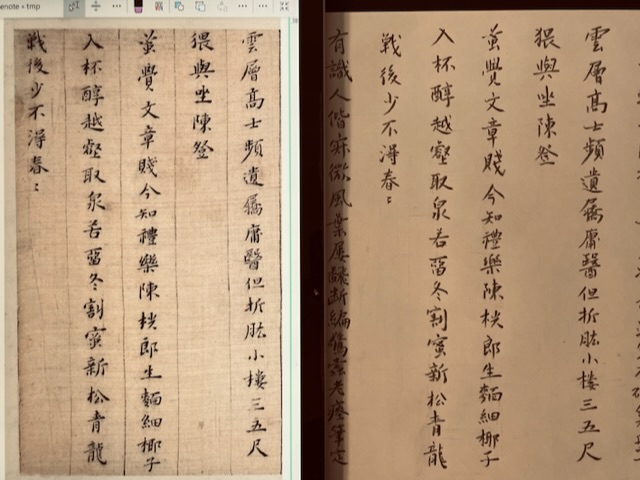 enote › tmp
雲層高士頻遺屩庸醫但折肱小樓三五尺
猥與坐陳登
蚤覺文章賤今知禮樂陳桄郎生麵細椰子
入杯醇越壑取泉若留冬割蜜新松青龍
戰後少不淂春
雲層高士頻遺屩庸醫但折肱小樓三五尺
猥與坐陳登
蚤覺文章賤今知禮樂陳桄郎生麵細椰子
入杯醇越壑取泉若留冬割蜜新松青龍
戰後少不淂春
有識人偕寐微風葉屢斷編